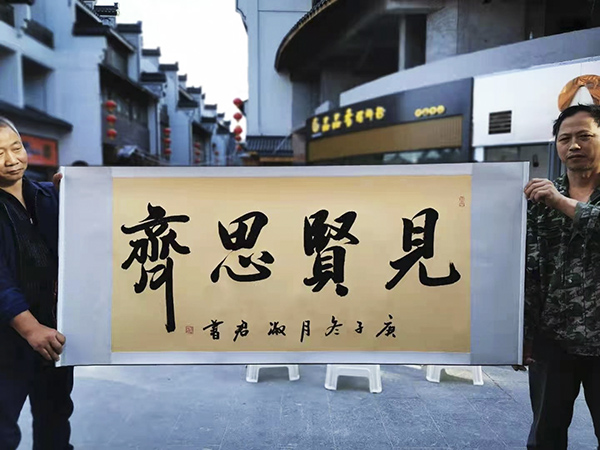 見賢思齊
庚子冬月淑君書